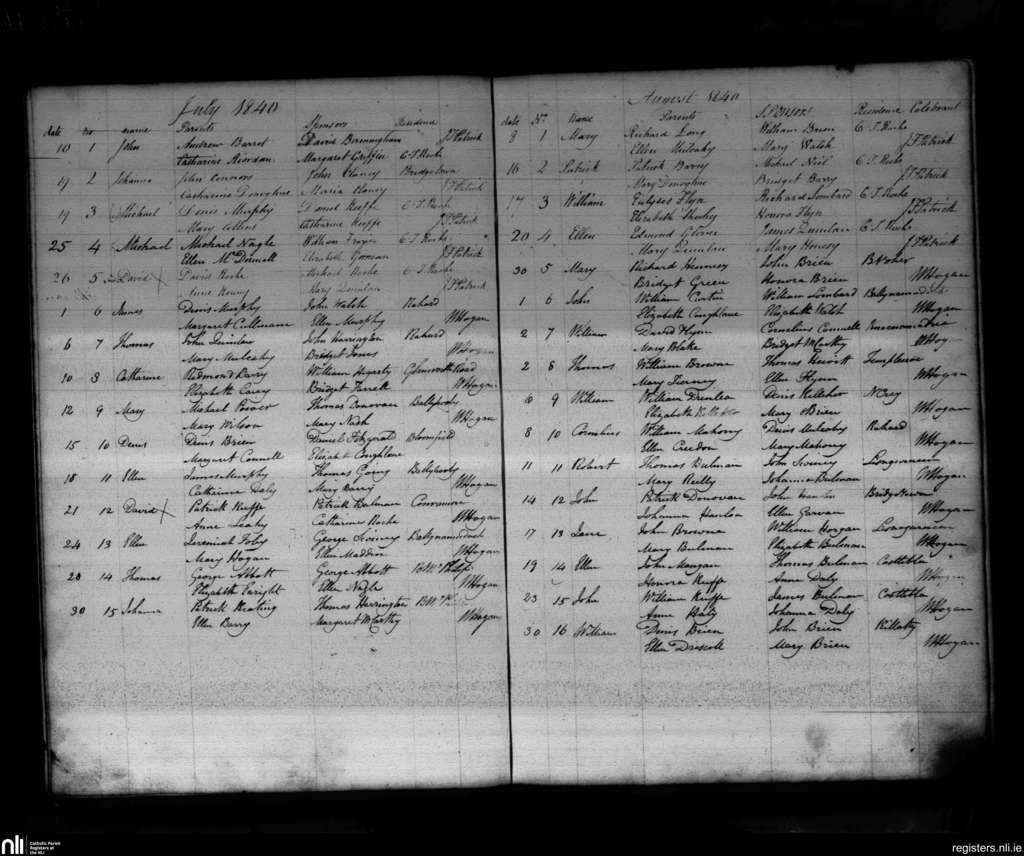 July 1840
date no. name Parents Sponsors Residence
10 1 John Andrew Barret David Bermingham J FPatrick
Catharine Reordan Margaret Griffin C. T. Roche
19 2 Johanna John Connors John Clancy Bridgetown
Catharine Donoghue Maria Clancy J FPatrick
19 3 Michael Denis Murphy Daniel Keeffe C. T. Roche
Mary Collins Catharine Keeffe J FPatrick
25 4 Michael Michael Nagle William C. T. Roche
Ellen McDonnell Elizabeth Gorman J FPatrick
26 5 David David Roche Michael Roche C. T. Roche
Anne Mary Quinlan J FPatrick
1 6 James Denis Murphy John Walsh Rahard
Margaret Cullinane Ellen Murphy WHogan
6 7 Thomas John Quinlan John Harrington Rahard
Mary Mulcahy Bridget Jones WHogan
10 8 Catharine Redmond Barry William Hegarty Glanworth Road
Elizabeth Carey Bridget Farrell WHogan
12 9 Mary Michael Power Thomas Donovan
Mary Wilson Mary Nash WHogan
15 10 Denis Denis Brien Daniel Fitzgerald Bloomfield
Margaret Connell Elizabeth Coughlane
18 11 Ellen James Murphy Thomas Going
Catharine Daly Mary Barry WHogan
21 12 David Patrick Keeffe Patrick Bulman
Anne Leahy Catharine Roche WHogan
24 13 Ellen Jeremiah Foley George Sweeney
Mary Hogan Ellen Madden WHogan
28 14 Thomas George Abbott George Abbott
Elizabeth Enright Ellen Nagle WHogan
30 15 Johanna Patrick Keating Thomas Harrington
Ellen Barry Margaret McCarthy WHogan
August 1840
date No. Name Parents Sponsors Residence Celebrant
8 1 Mary Richard Long William Brien C. T. Roche
Ellen Mulcahy Mary Walsh J FPatrick
16 2 Patrick Patrick Barry Michael Neil C. T. Roche
Mary Donoghue Bridget Barry J FPatrick
17 3 William Eulyses Flyn Richard Lombard C. T. Roche
Elizabeth Honora Flyn J FPatrick
20 4 Ellen Edmond Glover James Quinlan C. T. Roche
Mary Quinlan Mary J FPatrick
30 5 Mary Richard Hennesy John Brien
Bridget Green Honora Brien WHogan
1 6 John William William Lombard
Elizabeth Coughlane Elizabeth Walsh WHogan
2 7 William David Flynn Cornelius Connell
Mary Blake Bridget McCarthy WHogan
2 8 Thomas William Browne Thomas Hewitt Templenoe
Mary Tierney Ellen Flynn WHogan
6 9 William William Denis Kelleher
Elizabeth Mary O'Brien WHogan
8 10 Cornelius William Mahony Denis Mulcahy Rahard
Ellen Creedon Mary Mahony WHogan
11 11 Robert Thomas Bulman John Sweeney
Mary Reilly Johanna Bulman WHogan
14 12 John Patrick Donovan John Hanlon Bridgetown
Johanna Hanlon Ellen Garvan WHogan
17 13 Jane John Browne William Horgan
Mary Bulman Elizabeth Bulman WHogan
19 14 Ellen John Mangan Thomas Bulman
Honora Keeffe Anne Daly WHogan
23 15 John William Keeffe James Bulman
Anne Haly Johanna Daly WHogan
30 16 William Denis Brien John Brien Killatty
Ellen Driscoll Mary Brien WHogan
nli Catholic Parish Registers at the NLI
registers.nli.ie